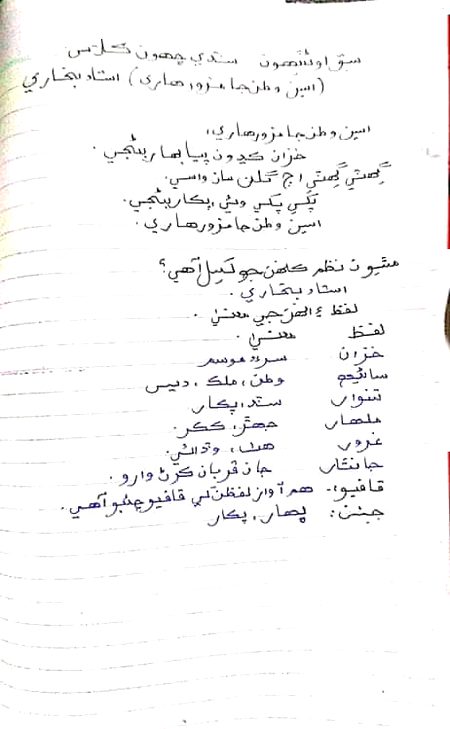 سبق اوڻٽيهون سنڌي ڇهون ڪلاس
(اسين وطن جا مزور هاري) استاد بخاري
اسين وطن جا مزور هاري،
خزان کدون پيا بهار بڻجي.
گهٽي گهٽي اڄ گلن سان واسي.
پکي پکي وڻي، پڪار بڻجي.
اسين وطن جا مزور هاري.
مٿيون نظم ڪنهن جو لکيل آهي؟
استاد بخاري.
لفظ ۽ انهن جي معنيٰ.
لفظ معنيٰ.
خزان سرء موسم
سانڊيهه وطن، ملڪ، ديس
تنوار سڏ، پڪار
ملهار جهڙ، ڪڪر
غرور هٺ، وڏائي
جانثار جان قربان ڪرڻ وارو.
قافيو:- هم آواز لفظن کي قافيو چئبو آهي.
جيئن: بهار، پڪار